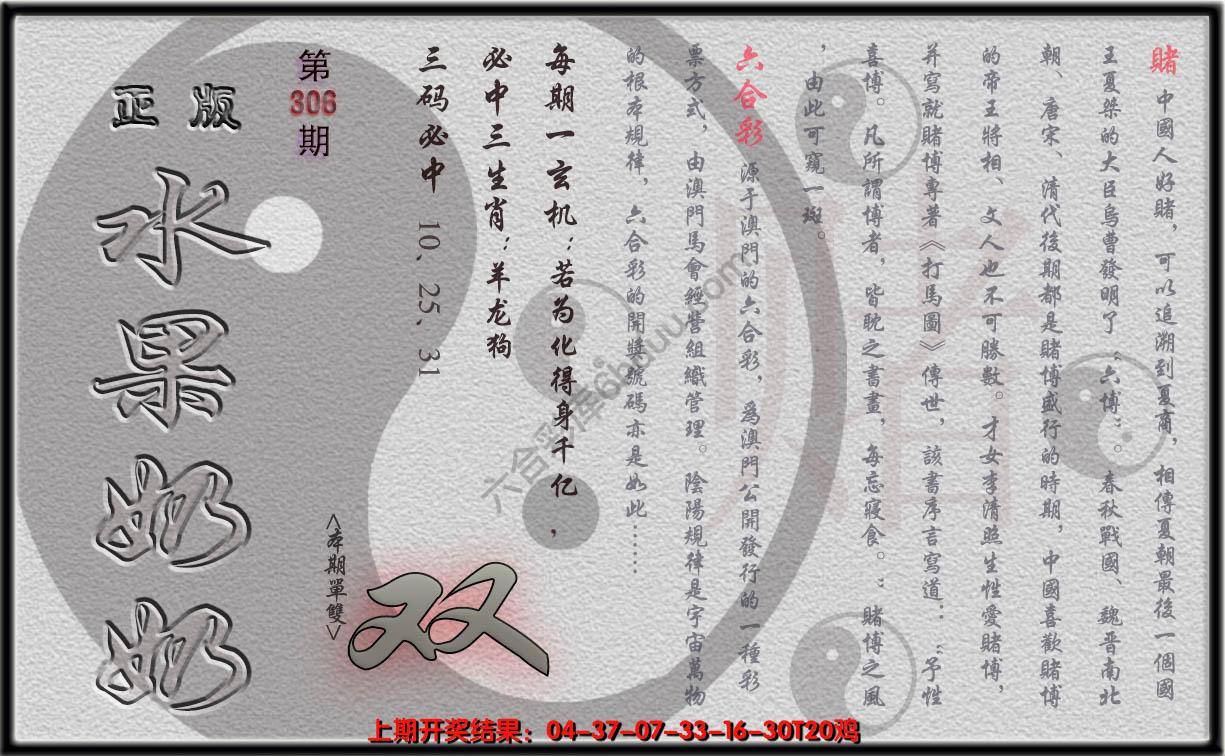 賭 中國人好賭，可以追溯到夏商，相傳夏朝最後一個國
王夏桀的大臣烏曹發明了“六博”。春秋戰國、魏晋南北
朝、唐宋、清代後期都是賭博盛行的時期，中國喜歡賭博
的帝王將相、文人也不可勝數。才女李清照生性愛賭博，
并寫就賭博專著《打馬圖》傳世，該書序言寫道：“予性
喜博。凡所謂博者，皆耽之書畫，每忘寢食。”賭博之風
，由此可窺一斑。
六合彩 源于澳門的六合彩，爲澳門公開發行的一種彩
票方式，由澳門馬會經營組織管理。陰陽規律是宇宙萬物
的根本規律，六合彩的開獎號碼亦是如此……
每期一玄机：若为化得身千亿，
必中三生肖：羊龙狗
三码必中 10、25、31
<本期單雙>
双
第
306
期
正版
水果奶奶
六合彩库6huuu.com
上期开奖结果：04-37-07-33-16-30T20鸡